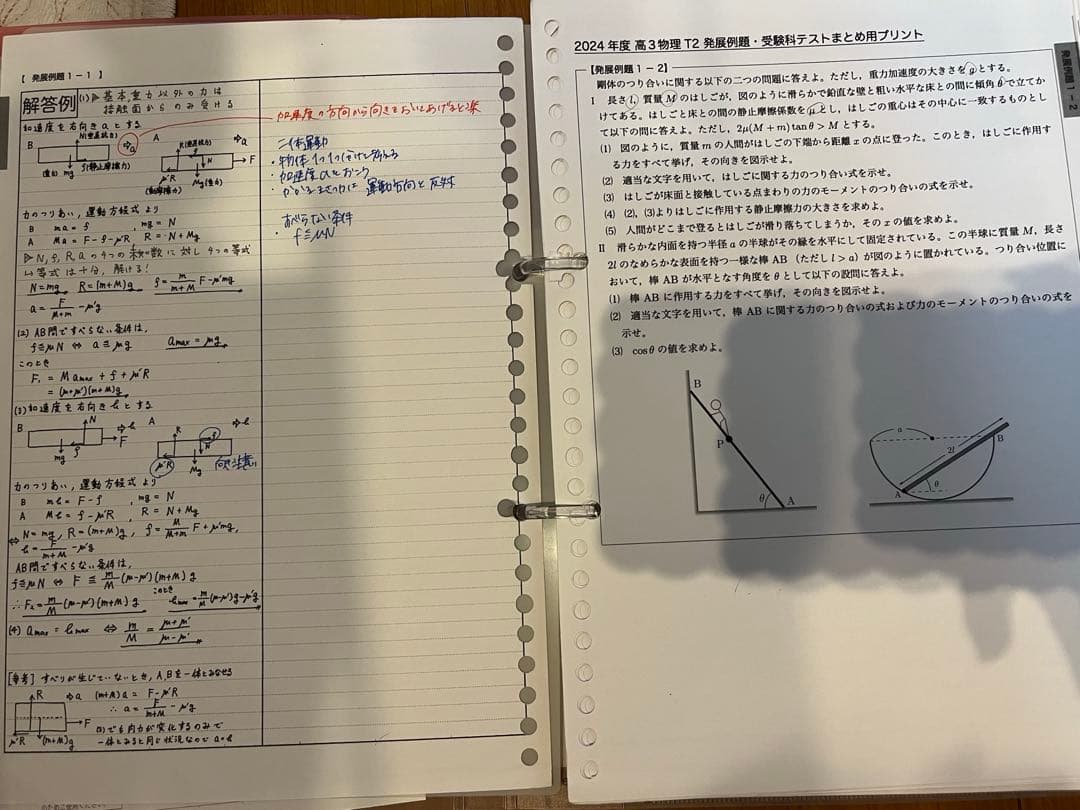 【 発展例題1-1 】
解答例
(1) ▷ 基本、重力以外の力は
接触面からのみ受ける
加速度を右向きaとする
B N(垂直抗力) ⇨a A ⇨a
f(静止摩擦力) R(垂直抗力) f F
(重力) mg μ'R N
(動摩擦力) Mg(重力)
力のつりあい, 運動方程式 より
B ma = f , mg = N
A Ma = F - f - μ'R R = N + Mg
▷ N, f, R, a の4つの未知数に対し 4つの等式
↳ 等式は十分, 解ける!
N = mg, R = (m+M)g f = m/(m+M) F - μ'mg
a = F/(M+m) - μ'g
(2) AB間ですべらない条件は,
f ≦ μN ⇔ a ≦ μg a_max = μg
このとき
F₁ = M a_max + f + μ'R
= (μ+μ')(m+M)g
(3) 加速度を右向き b とする
B N ⇨b A ⇨b
f F R f
mg μ'R N Mg 向き注意!
力のつりあい, 運動方程式 より
B mb = F - f , mg = N
A Mb = f - μ'R , R = N + Mg
⇔ N = mg, R = (m+M)g, f = M/(M+m) F + μ'mg,
b = F/(m+M) - μ'g
AB間ですべらない条件は,
f ≦ μN ⇔ F ≦ m/M (μ-μ')(m+M)g
このとき
∴ F₂ = m/M (μ-μ')(m+M)g b_max = m/M (μ-μ')g - μ'g
(4) a_max = b_max ⇔ m/M = (μ+μ')/(μ-μ')
[参考] すべりが生じていないとき, A,Bを一体とみなせる
R ⇨a (m+M)a = F - μ'R
∴ a = F/(m+M) - μ'g
F
(3)でも内力が変化するのみで
μ'R (m+M)g 一体とみると同じ状況なので a = b
加速度の方向から向きをおいてあげると楽
二体運動
・物体1つ1つ分けて考える
・加速度ひとおく
すべらない条件
・ f ≦ μN
2024 年度 高3物理 T2 発展例題・受験科テストまとめ用プリント
発展例題1-2
【発展例題1-2】
剛体のつり合いに関する以下の二つの問題に答えよ。ただし，重力加速度の大きさを g とする。
I 長さ l，質量 M のはしごが，図のように滑らかで鉛直な壁と粗い水平な床との間に傾角 θ で立てか
けてある。はしごと床との間の静止摩擦係数を μ とし，はしごの重心はその中心に一致するものとし
て以下の問に答えよ。ただし，2μ(M + m) tan θ > M とする。
(1) 図のように，質量 m の人間がはしごの下端から距離 x の点に登った。このとき，はしごに作用す
る力をすべて挙げ，その向きを図示せよ。
(2) 適当な文字を用いて，はしごに関する力のつり合い式を示せ。
(3) はしごが床面と接触している点まわりの力のモーメントのつり合いの式を示せ。
(4) (2)，(3)よりはしごに作用する静止摩擦力の大きさを求めよ。
(5) 人間がどこまで登るとはしごが滑り落ちてしまうか，その x の値を求めよ。
II 滑らかな内面を持つ半径 a の半球がその縁を水平にして固定されている。この半球に質量 M，長さ
2l のなめらかな表面を持つ一様な棒 AB (ただし l > a) が図のように置かれている。つり合い位置に
おいて，棒 AB が水平となす角度を θ として以下の設問に答えよ。
(1) 棒 AB に作用する力をすべて挙げ，その向きを図示せよ。
(2) 適当な文字を用いて，棒 AB に関する力のつり合いの式および力のモーメントのつり合いの式を
示せ。
(3) cos θ の値を求めよ。
B
P
θ A
a
2l B
A θ